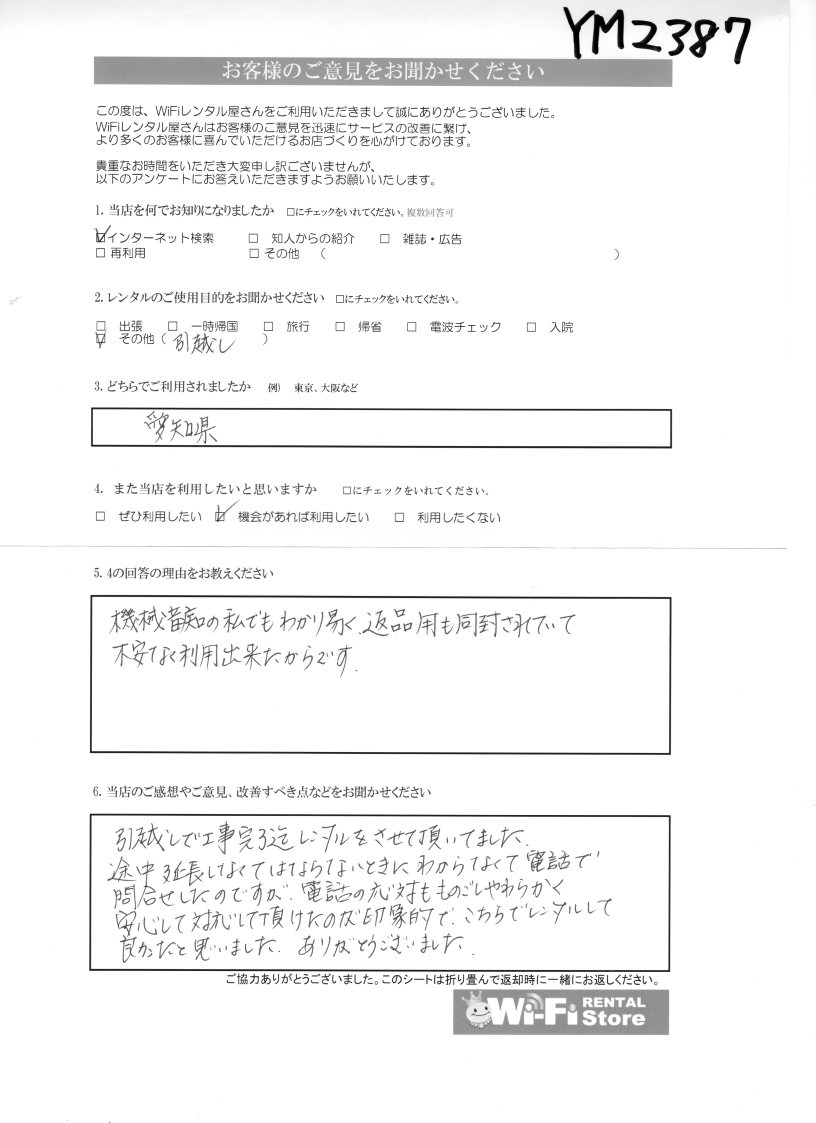 YM2387
お客様のご意見をお聞かせください
この度は、WiFiレンタル屋さんをご利用いただきまして誠にありがとうございました。
WiFiレンタル屋さんはお客様のご意見を迅速にサービスの改善に繋げ、
より多くのお客様に喜んでいただけるお店づくりを心がけております。
貴重なお時間をいただき大変申し訳ございませんが、
以下のアンケートにお答えいただきますようお願いいたします。
1. 当店を何でお知りになりましたか □にチェックをいれてください。複数回答可
☑インターネット検索 □ 知人からの紹介 □ 雑誌・広告
□ 再利用 □ その他 ( )
2. レンタルのご使用目的をお聞かせください □にチェックをいれてください。
□ 出張 □ 一時帰国 □ 旅行 □ 帰省 □ 電波チェック □ 入院
☑ その他 ( 引越し )
3. どちらでご利用されましたか 例) 東京、大阪など
愛知県
4. また当店を利用したいと思いますか □にチェックをいれてください。
□ ぜひ利用したい ☑ 機会があれば利用したい □ 利用したくない
5. 4の回答の理由をお教えください
機械音痴の私でもわかり易く、返品用も同封されていて
不安なく利用出来たからです.
6. 当店のご感想やご意見、改善すべき点などをお聞かせください
引越しで工事完了迄レンタルをさせて頂いてました.
途中延長しなくてはならないときにわからなくて電話で
問合せしたのですが、電話の応対もものごしやわらかく
安心して対応して頂けたのが印象的で、こちらでレンタルして
良かったと思いました. ありがとうございました.
ご協力ありがとうございました。このシートは折り畳んで返却時に一緒にお返しください。
Wi-Fi RENTAL Store